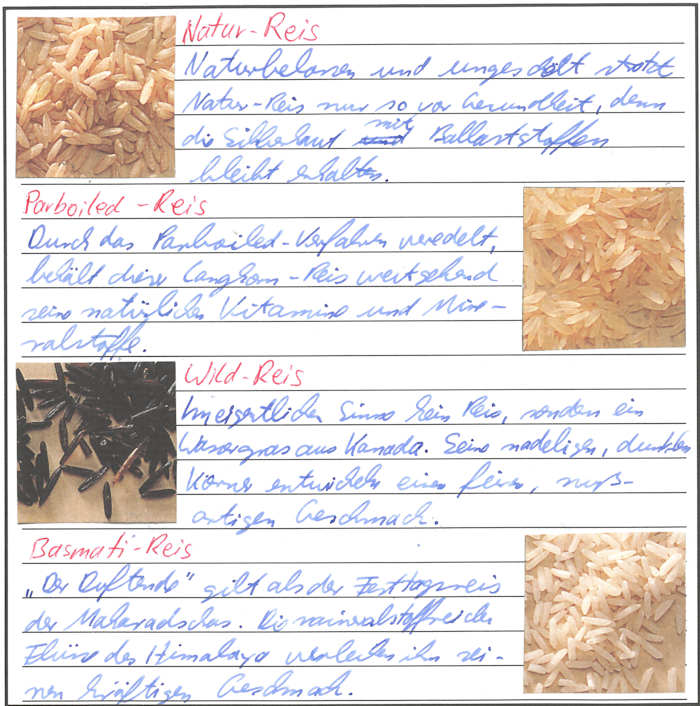 Natur-Reis
Naturbelassen und ungeschält strotzt
Natur-Reis nur so vor Gesundheit, denn
die Silberhaut mit Ballaststoffen
bleibt erhalten.
Parboiled-Reis
Durch das Parboiled-Verfahren veredelt,
behält dieser Langkorn-Reis weitgehend
seine natürlichen Vitamine und Mine-
ralstoffe.
Wild-Reis
Im eigentlichen Sinne kein Reis, sondern ein
Wassergras aus Kanada. Seine nadeligen, dunklen
Körner entwickeln einen feinen, nuß-
artigen Geschmack.
Basmati-Reis
„Der Duftende" gilt als der Festtagsreis
der Maharadschas. Die mineralstoffreichen
Flüsse des Himalaya verleihen ihm sei-
nen kräftigen Geschmack.